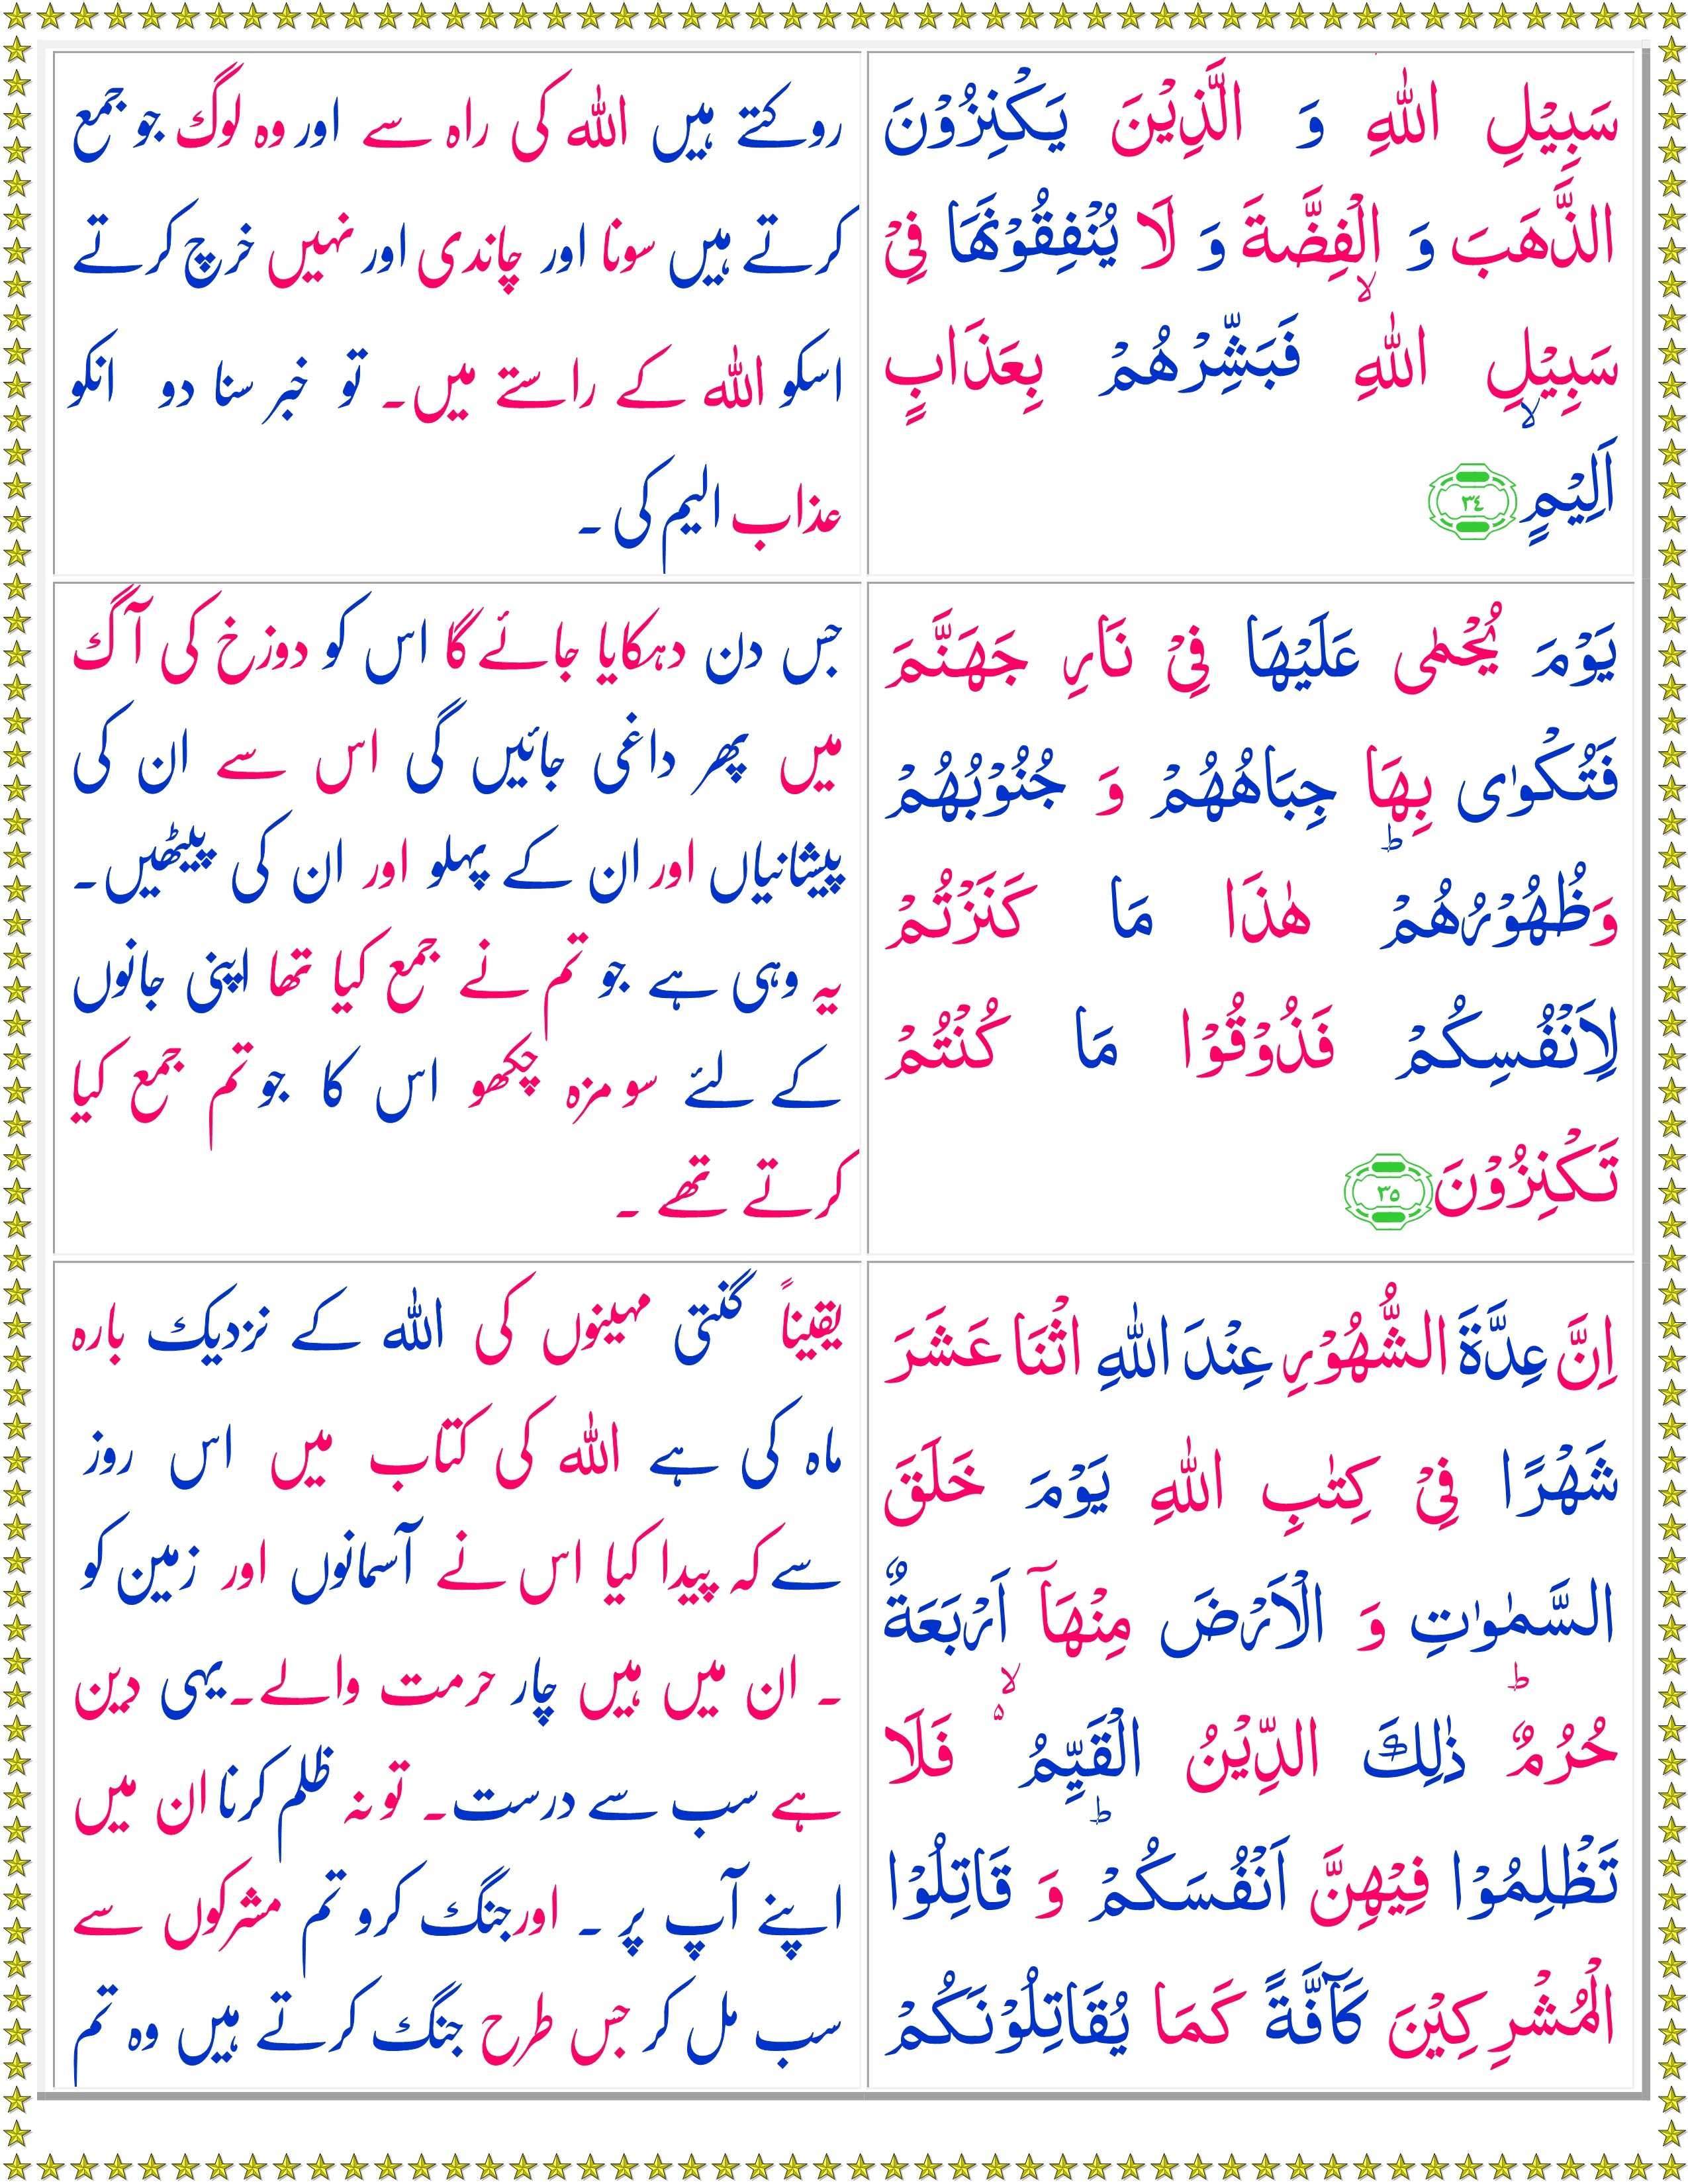 سَبِيْلِ اللّٰهِ وَ الَّذِيْنَ يَكْنِزُوْنَ
الذَّهَبَ وَ الْفِضَّةَ وَ لَا يُنْفِقُوْنَهَا فِيْ
سَبِيْلِ اللّٰهِ ۙ فَبَشِّرْهُمْ بِعَذَابٍ
اَلِيْمٍ ۙ ٣٤
روکتے ہیں اللہ کی راہ سے اور وہ لوگ جو جمع
کرتے ہیں سونا اور چاندی اور نہیں خرچ کرتے
اسکو اللہ کے راستے میں۔ تو خبر سنا دو انکو
عذاب الیم کی ۔
يَوْمَ يُحْمٰى عَلَيْهَا فِيْ نَارِ جَهَنَّمَ
فَتُكْوٰى بِهَا جِبَاهُهُمْ وَ جُنُوْبُهُمْ
وَظُهُوْرُهُمْ ؕ هٰذَا مَا كَنَزْتُمْ
لِاَنْفُسِكُمْ فَذُوْقُوْا مَا كُنْتُمْ
تَكْنِزُوْنَ ٣٥
جس دن دہکایا جائے گا اس کو دوزخ کی آگ
میں پھر داغی جائیں گی اس سے ان کی
پیشانیاں اور ان کے پہلو اور ان کی پیٹھیں۔
یہ وہی ہے جو تم نے جمع کیا تھا اپنی جانوں
کے لئے سو مزہ چکھو اس کا جو تم جمع کیا
کرتے تھے ۔
اِنَّ عِدَّةَ الشُّهُوْرِ عِنْدَ اللّٰهِ اثْنَا عَشَرَ
شَهْرًا فِيْ كِتٰبِ اللّٰهِ يَوْمَ خَلَقَ
السَّمٰوٰتِ وَ الْاَرْضَ مِنْهَاۤ اَرْبَعَةٌ
حُرُمٌ ؕ ذٰلِكَ الدِّيْنُ الْقَيِّمُ ۙ۬ فَلَا
تَظْلِمُوْا فِيْهِنَّ اَنْفُسَكُمْ ؕ وَ قَاتِلُوا
الْمُشْرِكِيْنَ كَآفَّةً كَمَا يُقَاتِلُوْنَكُمْ
یقیناً گنتی مہینوں کی اللہ کے نزدیک بارہ
ماہ کی ہے اللہ کی کتاب میں اس روز
سے کہ پیدا کیا اس نے آسمانوں اور زمین کو
۔ ان میں ہیں چار حرمت والے۔ یہی دین
ہے سب سے درست۔ تو نہ ظلم کرنا ان میں
اپنے آپ پر ۔ اور جنگ کرو تم مشرکوں سے
سب مل کر جس طرح جنگ کرتے ہیں وہ تم